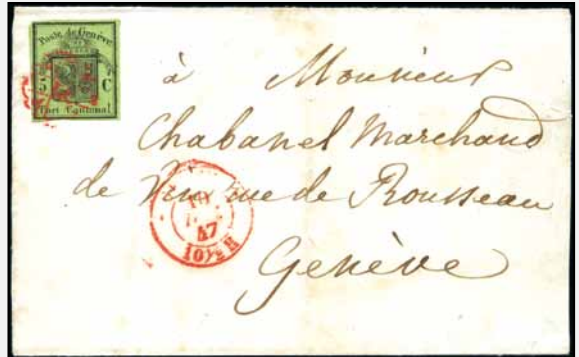 Poste de Genève
5 C
Port Cantonal
à Monsieur
Chabanel Marchand
de Vin rue de Rousseau
Genève
10
47
10½ H